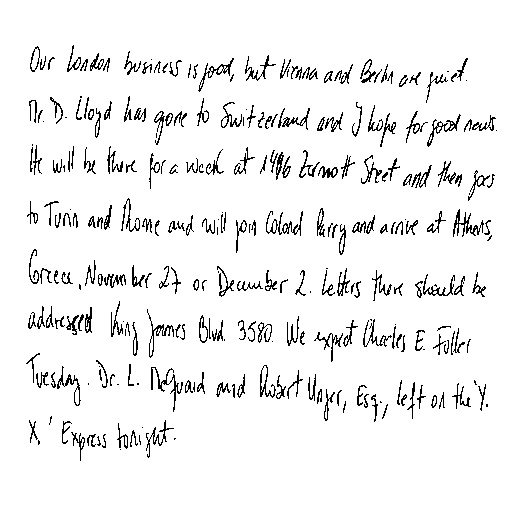 Our London business is good, but Vienna and Berlin are quiet.
Mr. D. Lloyd has gone to Switzerland and I hope for good news.
He will be there for a week at 1496 Zermott Street and then goes
to Turin and Rome and will join Colonel Parry and arrive at Athens,
Greece, November 27 or December 2. Letters there should be
addressed King James Blvd. 3580. We expect Charles E. Fuller
Tuesday. Dr. L. McQuaid and Robert Unger, Esq., left on the 'Y.
X.' Express tonight.